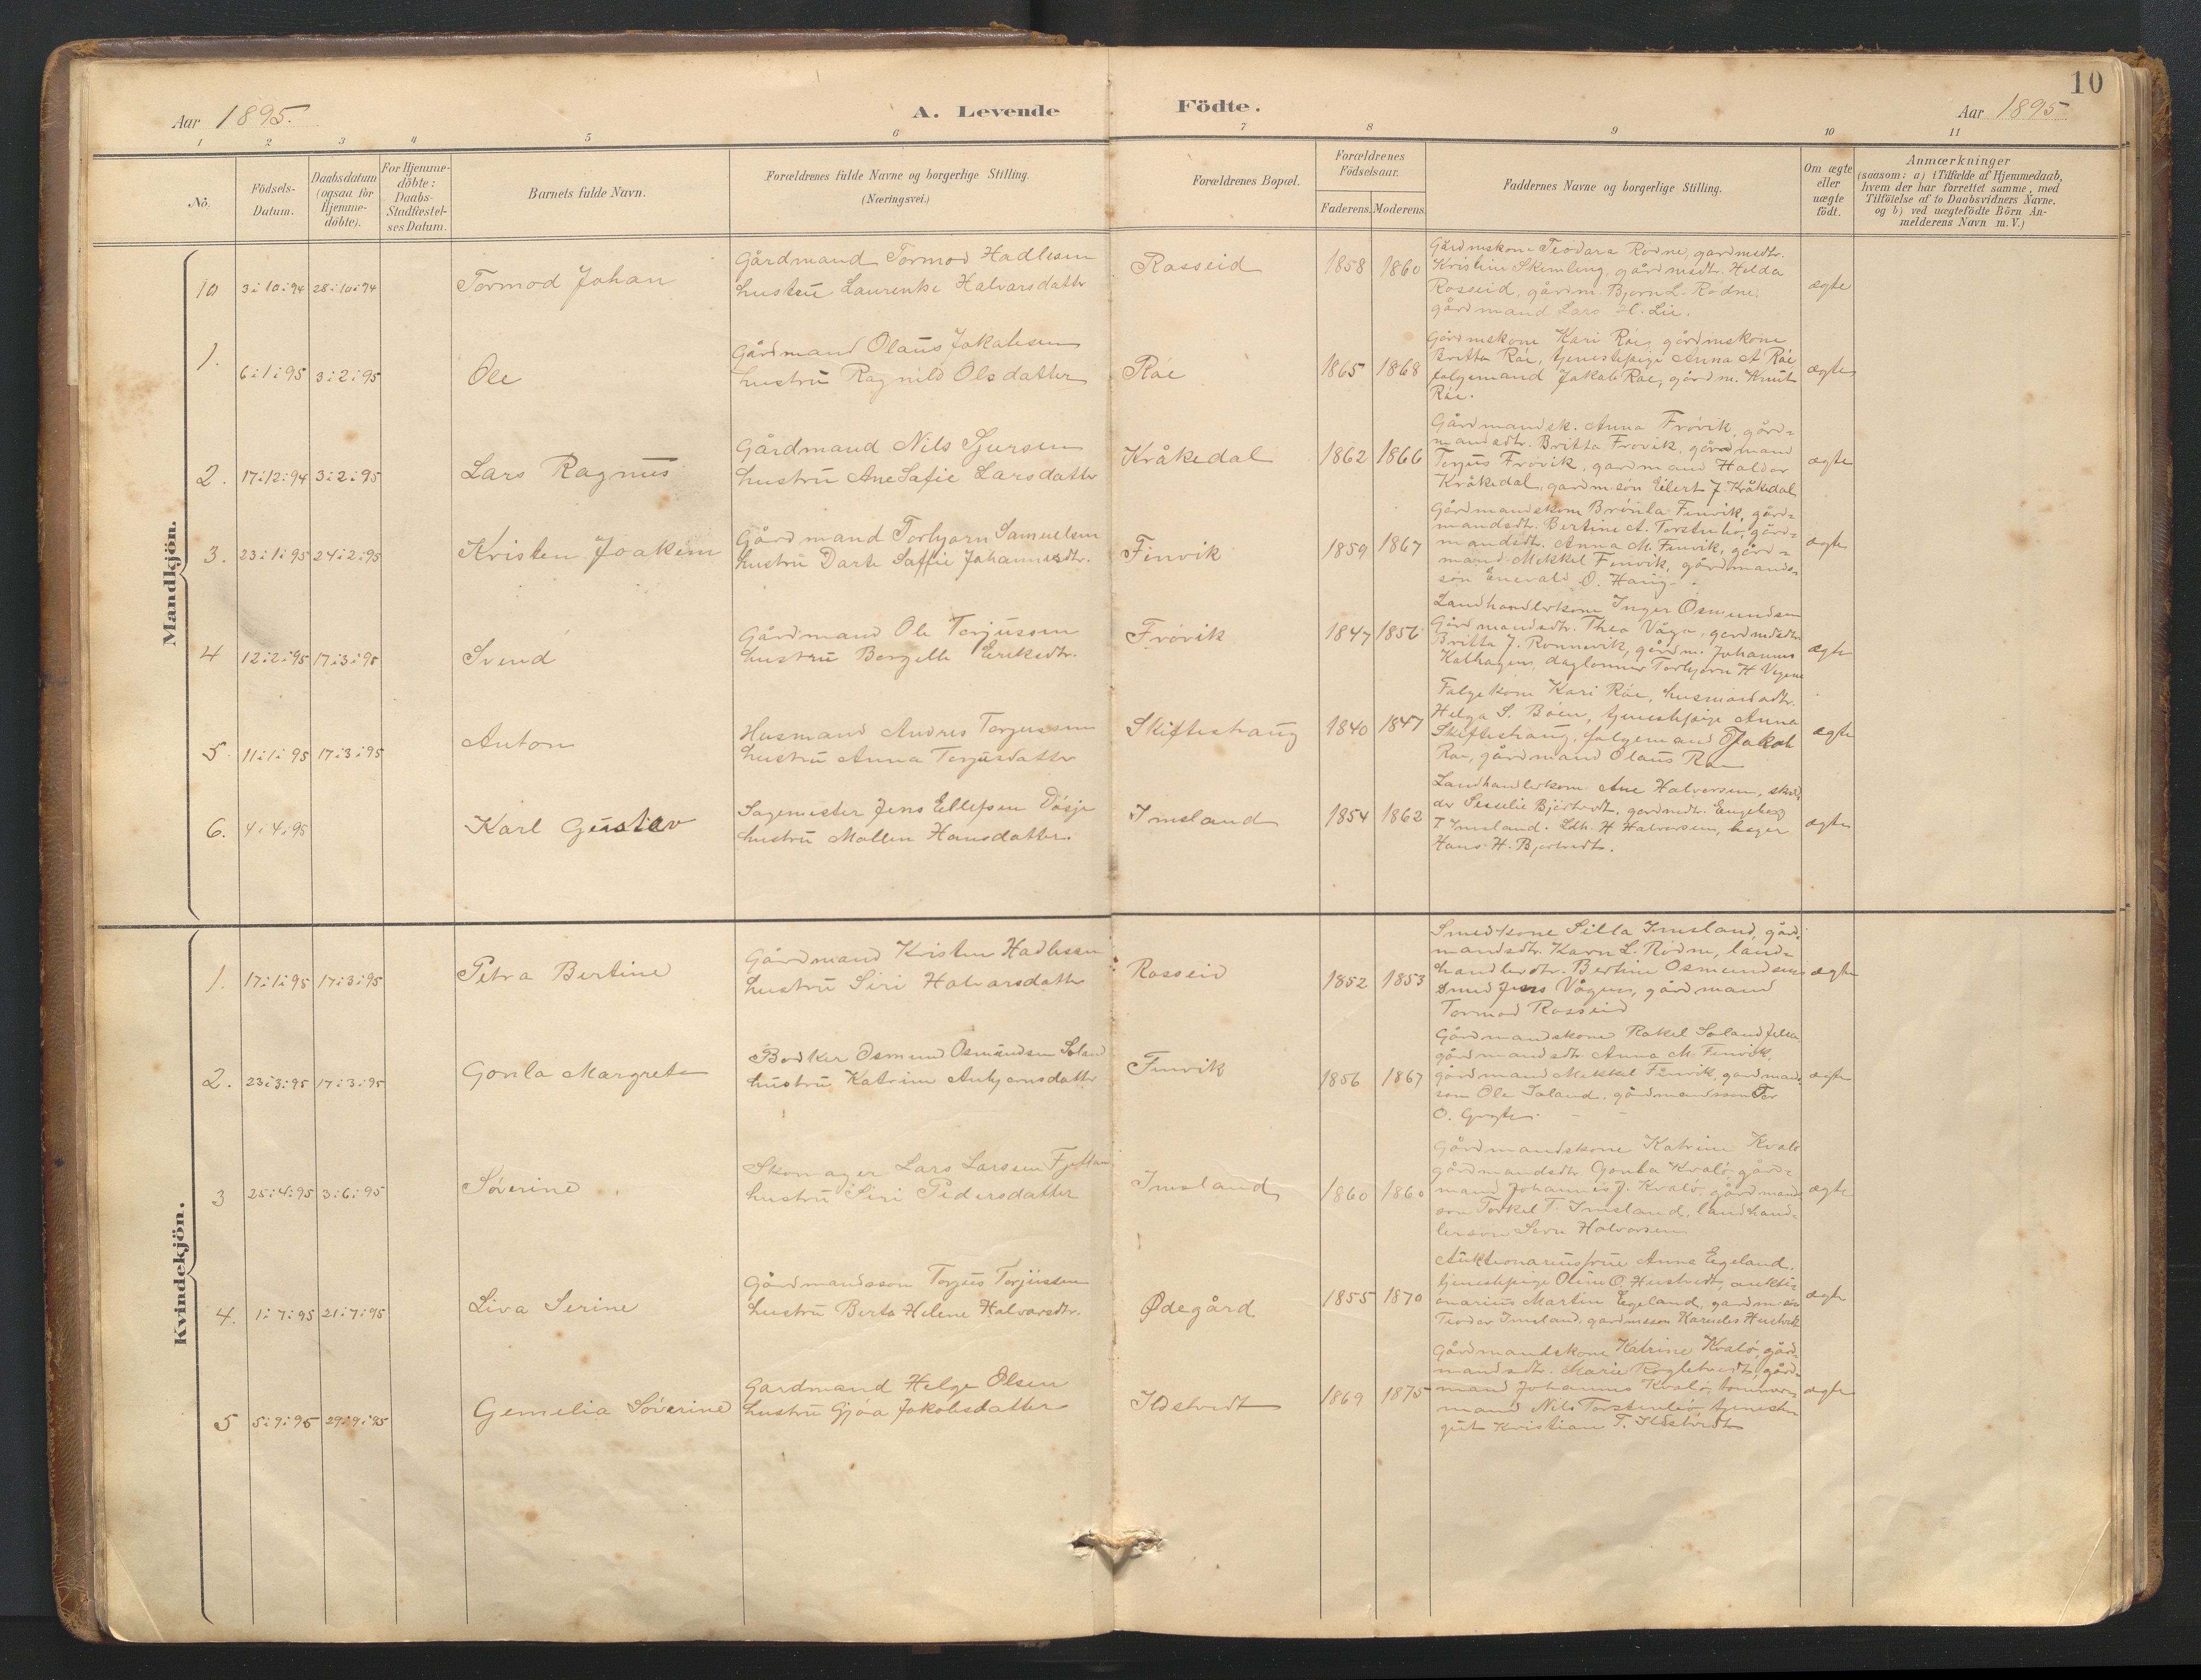 10
Aar 1895.
A. Levende Födte.
Aar 1895
1 2 3 4 5 6 7 8 9 10 11
No.
Födsels-
Datum.
Daabsdatum
(ogsaa for
Hjemme-
döbte).
For Hjemme-
döbte:
Daabs-
Stadfæstel-
ses Datum.
Barnets fulde Navn.
Forældrenes fulde Navne og borgerlige Stilling.
(Næringsvei.)
Forældrenes Bopæl.
Forældrenes
Födselsaar.
Faderens. Moderens.
Faddernes Navne og borgerlige Stilling.
Om ægte
eller
uægte
födt.
Anmærkninger
(saasom: a) i Tilfælde af Hjemmedaab,
hvem der har forrettet samme, med
Tilföielse af to Daabsvidners Navne.
og b) ved uægtefödte Börn An-
melderens Navn m. V.)
Mandkjön.
10 3:10:94 28:10:94
Tormod Johan
Gårdmand Tormod Hadlesen
hustrū Laurentse Halvarsdatter
Rasseid
1858 1860
Gårdmskone Teodara Rødne, gardmdtr.
Kristine Skimling, gårdmdtr. Helda
Rosseid, gårdm. Bjørn L. Rødne,
gårdmand Lars H. Lie.
ægte
1. 6:1:95 3:2:95
Ole
Gårdmand Olaūs Jakabsen
hustrū Ragnild Olsdatter
Råe
1865 1868
Gårdmskone Kari Råe, gårdmskone
Britta Råe, tjenestepige Anna A Råe
folgemand Jakab Rae, gårdm. Knūt
Råe.
ægte
2. 17:12:94 3:2:95
Lars Ragnūs
Gårdmand Nils Sjursen
hustrū Ane Safie Larsdatter
Kråkedal
1862 1866
Gårdmandsk. Anna Frövik, gård-
mandsdtr. Britta Frövik, gårdmand
Torjūs Frövik, gardmand Haldor
Kråkedal, gardm.søn Eilert J. Kråkedal
ægte
3. 23:1:95 24:2:95
Kristen Joakim
Gårdmand Torbjørn Samuelsen
hustrū Darte Saffie Johannesdtr.
Finvik
1859 1867
Gårdmandskone Brönla Finvik, gård-
mandsdtr. Bertine A. Torstenbö, gård-
mandsdtr. Anna M. Finvik, gård-
mand Mekkel Finvik, gårdmands-
søn Enevald O. Haūg.
ægte
4 12:2:95 17:3:95
Svend
Gårdmand Ole Torjūssen
hustrū Borgelle Eriksdtr.
Frövik
1847 1856
Landhandlerkone Inger Osmundsen
Gårdmandsdtr. Thea Våge, gardmdsdtr
Britta J. Rønnevik, gårdm. Johannes
Kalhagen, daglønner Torbjørn H Vegene
ægte
5. 11:1:95 17:3:95
Anton
Husmand Andres Torjussen
hustrū Anna Torjūsdatter
Skifteshaūg
1840 1847
Folgekone Kari Råe, husmandsdtr.
Helga S. Böen, tjenestepige Anna
Skifteshaūg, folgemand Jakob
Rae, gårdmand Olaūs Rae
ægte
6. 4:4:95
Karl Gūstav
Sagemester Jens Ellefsen Dösje
hustrū Mallen Hansdatter.
Imsland
1854 1862
Landhandlerkone Ane Halvorsen,
Sesselie Bjertvedt, gardmdtr. Engeborg
T Imsland. Ldh. H Halvorsen, bager
Hans H. Bjertvedt.
ægte
Kvindekjön.
1. 17:1:95 17:3:95
Petra Bertine
Gårdmand Kristen Hadlesen
hustrū Siri Halvarsdatter
Rasseid
1852 1853
Smedkone Silla Imsland, gård-
mandsdtr. Karn L. Rødne, land-
handlerdtr. Bertine Osmundsen
smed Jens Vågen, gårdmand
Tormod Rasseid
ægte
2. 23:3:95 17:3:95
Gonla Margrete
Bødker Osmund Osmūndsen Soland
hūstrū Katrine Anbjørnsdatter
Finvik
1856 1867
Gårdmandskone Rakel Soland Jelsa,
gårdmandsdtr. Anna M. Finvik,
gårdmand Mekkel Finvik, gardmands-
søn Ole Soland, gårdmandssøn Tor
O.
ægte
3 25:4:95 3:6:95
Söverine
Skomager Lars Larsen
hustrū Siri Pedersdatter
Imsland
1860 1860
Gårdmandskone Katrine Kvalö
gårdmandsdtr Gonla Kvalö, gård-
mand Johannes J. Kvalö, gårdmands
søn Torkel T. Imsland, landhand-
lersøn Sevr Halvorsen
ægte
4. 1:7:95 21:7:95
Liva Serine
Gårdmandssøn Torjūs Torjūssen
hustrū Berta Helene Halvorsdtr.
Ødegård
1855 1870
Aūktionariusfrue Anna Egeland,
tjenestepige Oline O. Hustvedt, aukti-
onarius Martin Egeland, gardm.søn
Teodor Imsland, gardmssøn Karneles Hustvedt
ægte
5 5:9:95 29:9:95
Gemelia Söverine
Gardmand Helge Olsen
hustrū Gjöa Jakobsdatter
Ildstvedt
1869 1875
Gårdmandskone Katrine Kvalö, gård-
mandsdtr. Marie Rogletvedt, gård-
mand Johannes Kvalö, tømmer-
mand Nils Torstenbö, tjeneste-
gūt Kristian T. Ildstvedt
ægte